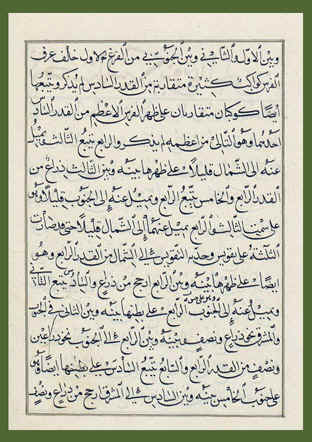 وبين الاول والثاني في وبين الجنوبي من الفرغ الاول خلف عرف
الفرس كواكب كثيرة متقاربة من القدر السادس لم يذكر ويتبعها
ايضا كوكبان متقاربان على ظهر الفرس الاعظم من القدر السادس
احدهما وهو التالي من عظمه لم يذكر والرابع يتبع الثالث
عنه الى الشمال قليلا على ظهرها بينه وبين الثالث ذراع من
القدر الرابع والخامس يتبع الرابع ويميل عنه الى الجنوب قليلا وهو
على سمت الثالث والرابع يميل عنهما الى الشمال قليلا حتى صارت
الثلثة على تقويس وحدبة التقويس الى الشمال من القدر الرابع وهو
ايضا على ظهرها بينه وبين الرابع ارجح من ذراع والسادس يتبع الثاني
ويميل عنه الى الجنوب على بطنها بينه وبين الثاني في الجنوب
والمشرق نحو ذراع ونصف وبينه وبين الرابع الى الجنوب نحو ذراعين
ونصف من القدر الرابع والسابع يتبع السادس على بطنها ايضا وهو
على جنوب الخامس بينه وبين السادس الى المشرق ارجح من ذراع ونصف